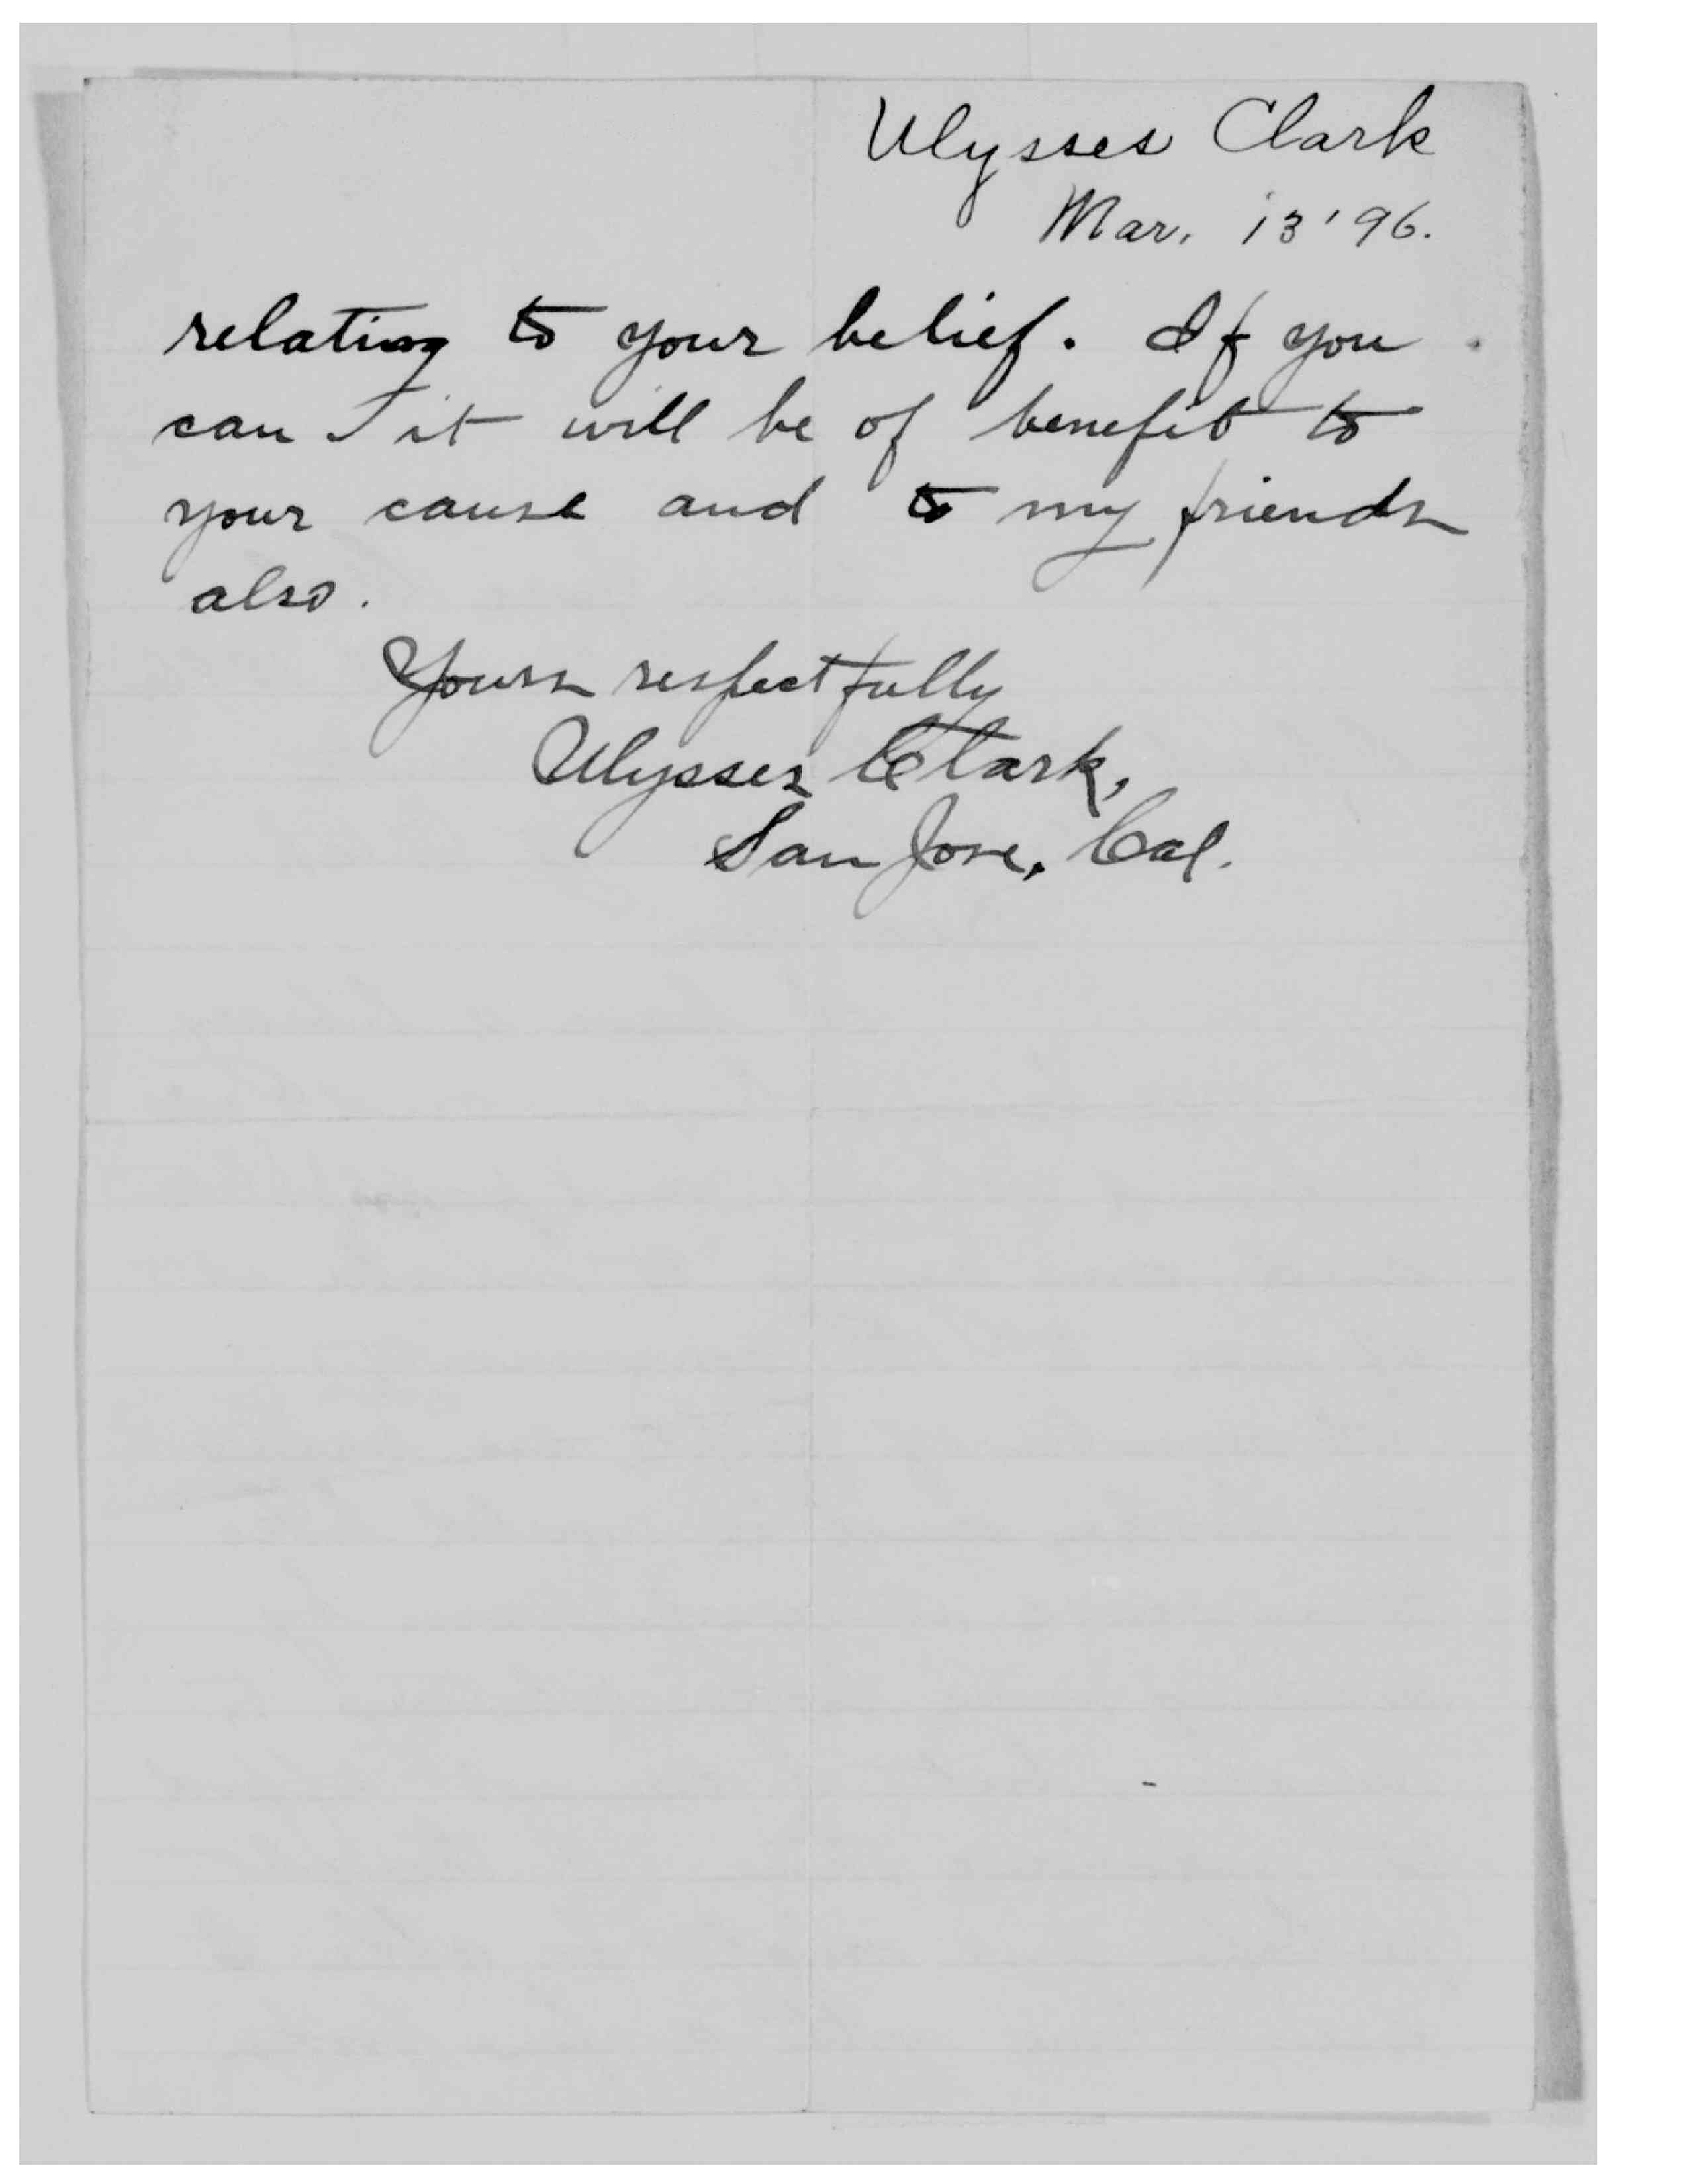 Ulysses Clark
Mar. 13 '96.
relating to your belief. If you
can it will be of benefit to
your cause and to my friends
also.
Yours respectfully
Ulysses Clark,
San Jose, Cal.